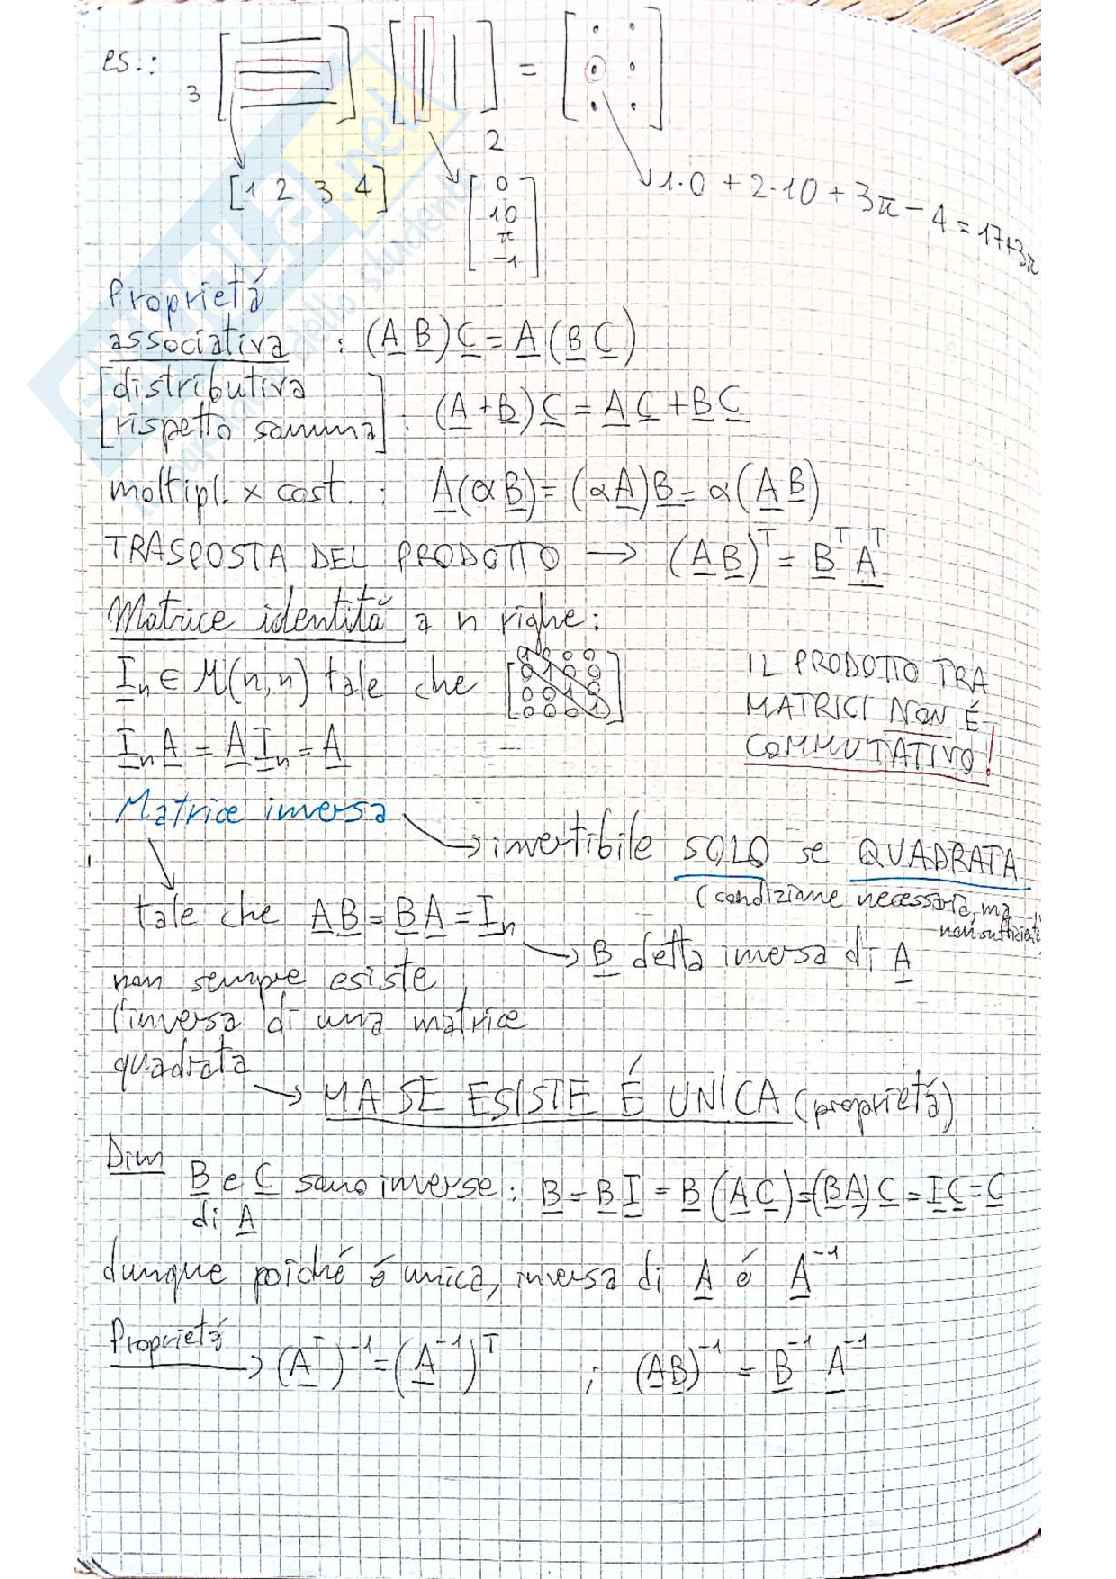 es.:
3 [ ] [ ] = [ ]
2
[1 2 3 4]
[0 10 π -1]
1·0 + 2·10 + 3π - 4 = 17+3π
Proprietá
associativa : (A B) C = A (B C)
[distributiva
rispetto somma] : (A + B) C = A C + B C
moltipl. x cost. : A(αB) = (αA)B = α(A B)
TRASPOSTA DEL PRODOTTO → (A B)ᵀ = Bᵀ Aᵀ
Matrice identitá a n righe:
Iₙ ∈ M(n,n) tale che
Iₙ A = A Iₙ = A
IL PRODOTTO TRA
MATRICI NON É
COMMUTATIVO!
Matrice inversa
→ invertibile SOLO se QUADRATA
(condizione necessaria, ma
non sufficiente
tale che A B = B A = Iₙ
→ B detta inversa di A
non sempre esiste
l'inversa di una matrice
quadrata
→ MA SE ESISTE É UNICA (proprietá)
Dim
B e C sono inverse : B = B I = B (A C) = (B A) C = I C = C
di A
dunque poiché é unica, inversa di A é A⁻¹
Proprietá → (Aᵀ)⁻¹ = (A⁻¹)ᵀ ; (AB)⁻¹ = B⁻¹ A⁻¹